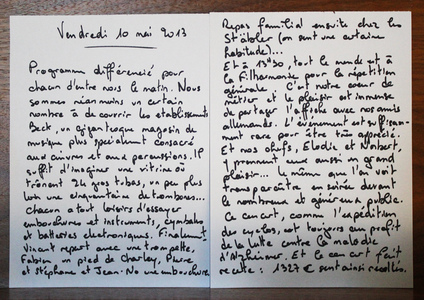 Vendredi 10 mai 2013
Programme différencié pour
chacun d'entre nous le matin. Nous
sommes néanmoins un certain
nombre à découvrir les établissements
Beck, un gigantesque magasin de
musique plus spécialement consacré
aux cuivres et aux percussions. Il
suffit d'imaginer une vitrine où
trônent 24 gros tubas, un peu plus
loin une cinquantaine de trombones...
Chacun a tout loisirs d'essayer
embouchures et instruments, cymbales
et batteries électroniques. Finalement
Vincent repart avec une trompette,
Fabien un pied de Charley, Pierre
et Stéphane et Jean-No une embouchure.
Repas familial ensuite chez les
Stäbler (on sent une certaine
habitude)...
Et à 13h30, tout le monde est à
la Filharmonie pour la répétition
générale. C'est notre cœur de
métier et le plaisir est immense
de partager l'affiche avec nos amis
allemands. L'évènement est suffisam-
ment rare pour être très apprécié.
Et nos chefs, Elodie et Norbert,
y prennent eux aussi un grand
plaisir... le même que l'on voit
transparaître en soirée devant
le nombreux et généreux public.
Ce concert, comme l'expédition
des cyclos, est toujours au profit
de la lutte contre la maladie
d'Alzheimer. Et le concert fait
recette : 1327 € sont ainsi récoltés.